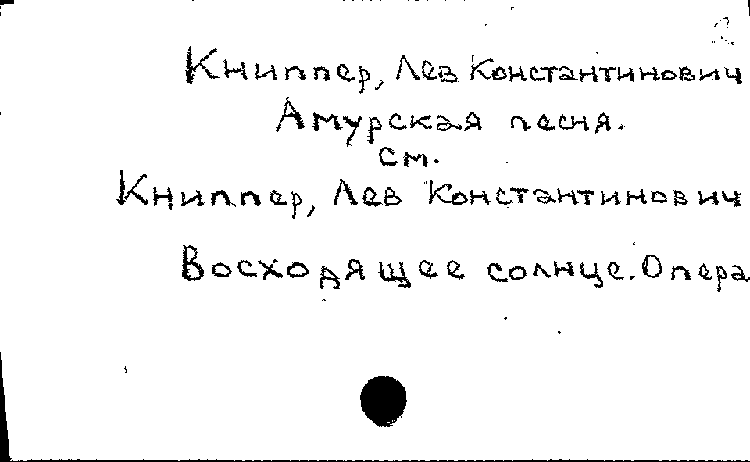 Книппер, Лев Константинович
Амурская песня.
см.
Книппер, Лев Константинович
Восходящее солнце. Опера